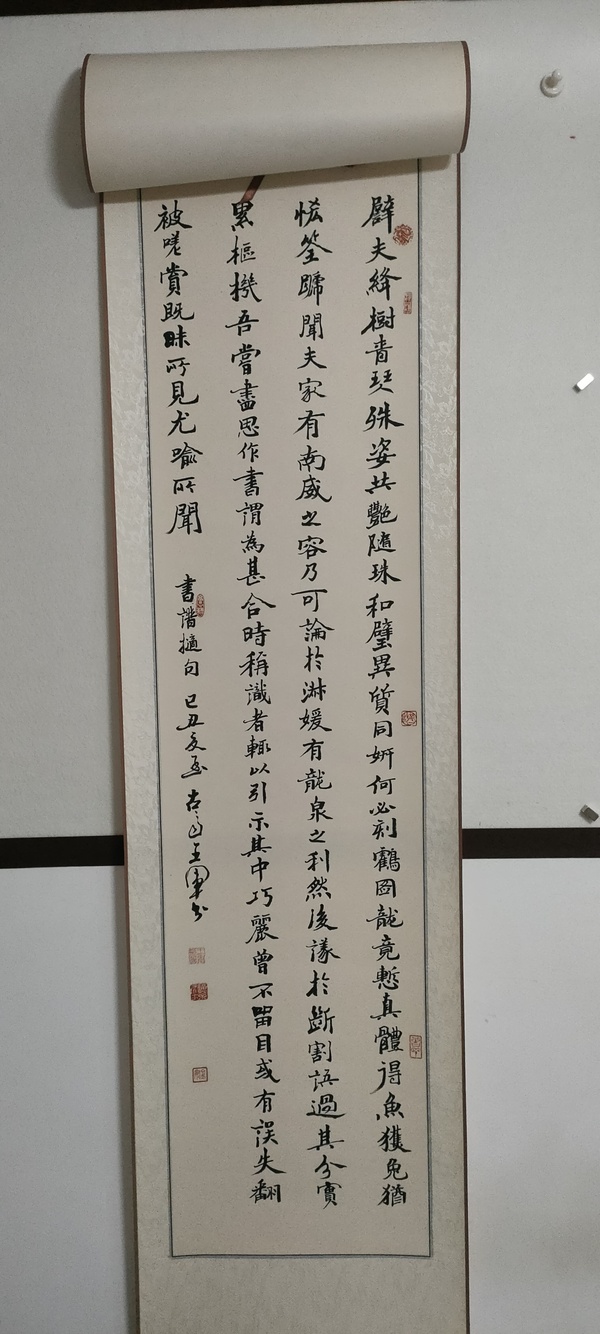 譬夫絳樹青琴殊姿共艷隨珠和璧異質同妍何必刻鶴圖龍竟慙真體得魚獲兔猶
恡筌蹄聞夫家有南威之容乃可論於淋媛有龍泉之利然後議於斷割語過其分實
累樞機吾嘗盡思作書謂為甚合時稱識者輒以引示其中巧麗曾不留目或有誤失翻
被嗟賞既昧所見尤喻所聞
書譜摘句 己丑夏至 王軍書